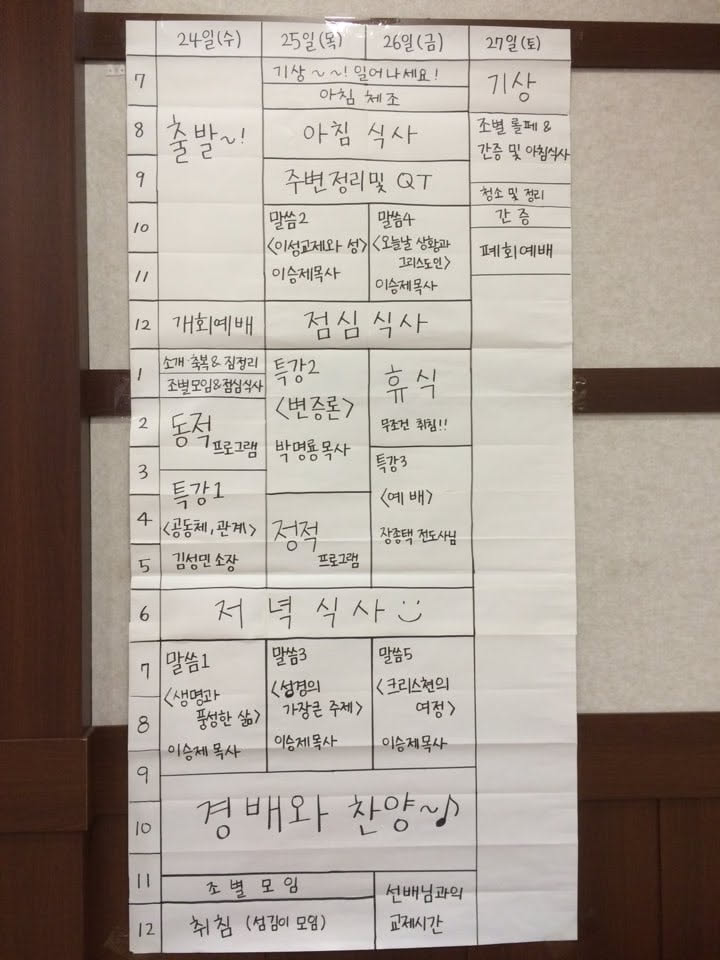 24일(수) 25일(목) 26일(금) 27일(토)
7
기상~~! 일어나세요!
아침 체조
기상
8
출발~!
아침 식사
조별 롤페 &
간증 및 아침식사
9
주변정리및 QT
청소 및 정리
간증
10
11
말씀2
<이성교제와 성>
이승제목사
말씀4
<오늘날 상황과
그리스도인>
이승제목사
폐회예배
12
개회예배
점심식사
1
소개·축복&짐정리
조별모임&점심식사
특강2
<변증론>
박명룡목사
휴식
무조건 취침!!
2
동적
프로그램
3
특강1
<공동체, 관계>
김성민 소장
특강3
<예배>
장종택 전도사님
4
정적
프로그램
5
6
저녁식사
7
말씀1
<생명과
풍성한 삶>
이승제 목사
말씀3
<성경의
가장큰 주제>
이승제목사
말씀5
<크리스천의
여정>
이승제목사
8
9
10
경배와 찬양~♪
11
조별모임
선배님과의
교제시간
12
취침 (섬김이 모임)